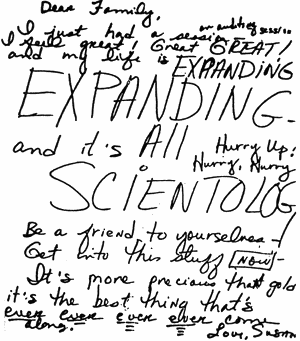 Dear Family,
I just had a session an auditing session
I feel great! Great GREAT!
and my life is EXPANDING
EXPANDING -
and it's All Hurry Up!
Hurry, Hurry
SCIENTOLOG
Be a friend to yourselves -
Get into this stuff NOW -
It's more precious than gold
it's the best thing that's
ever ever ever ever come
along. Love, Susan